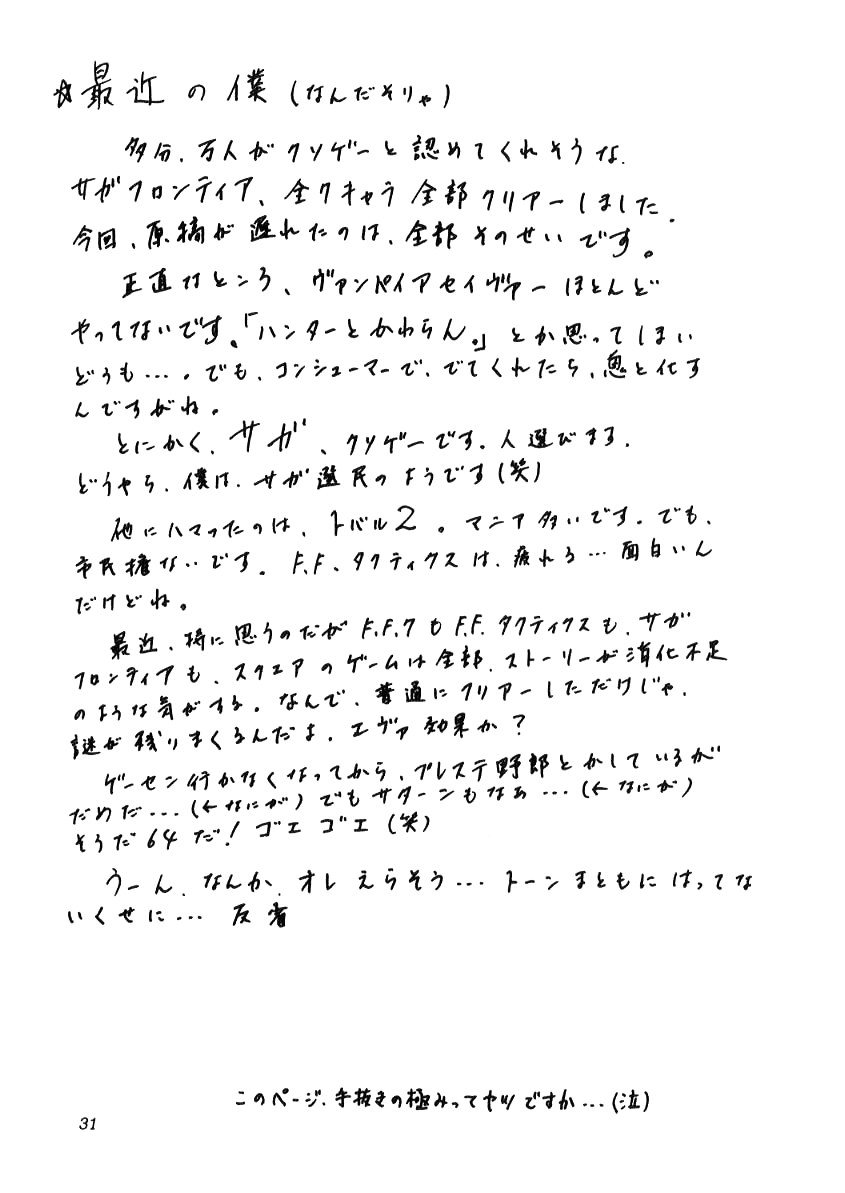 ☆最近の僕(なんだそりゃ)
多分、万人がクソゲーと認めてくれそうな、
サガフロンティア、全クキャラ全部クリアーしました.
今回、原稿が遅れたのは、全部そのせいです。
正直なところ、ヴァンパイアセイヴァーほとんど
やってないです。「ハンターとかわらん。」とか思ってしまい
どうも…。でも、コンシューマーで、でてくれたら、鬼と化す
んですがね。
とにかく、サガ、クソゲーです、人選びまる、
どうやら、僕は、サガ選民のようです(笑)
他にハマったのは、トバル2。マニア多いです。でも、
市民権ないです。F.F、タクティクスは、疲れる…面白いん
だけどね。
最近、特に思うのだがF.F.7もF.F.タクティクスも、サガ
フロンティアも、スクエアのゲームは全部、ストーリーが消化不足
のような気がする。なんで、普通にクリアーしただけじゃ、
謎が残りまくるんだよ、エヴァ効果か?
ゲーセン行かなくなってから、プレステ野郎とかしているが
だめだ…(←なにが)でもサターンもなぁ…(←なにが)
そうだ64だ!ゴエゴエ(笑)
うーん、なんか、オレえらそう…トーンまともにはってな
いくせに…反省
このページ、手抜きの極みってヤツですか…(泣)
31